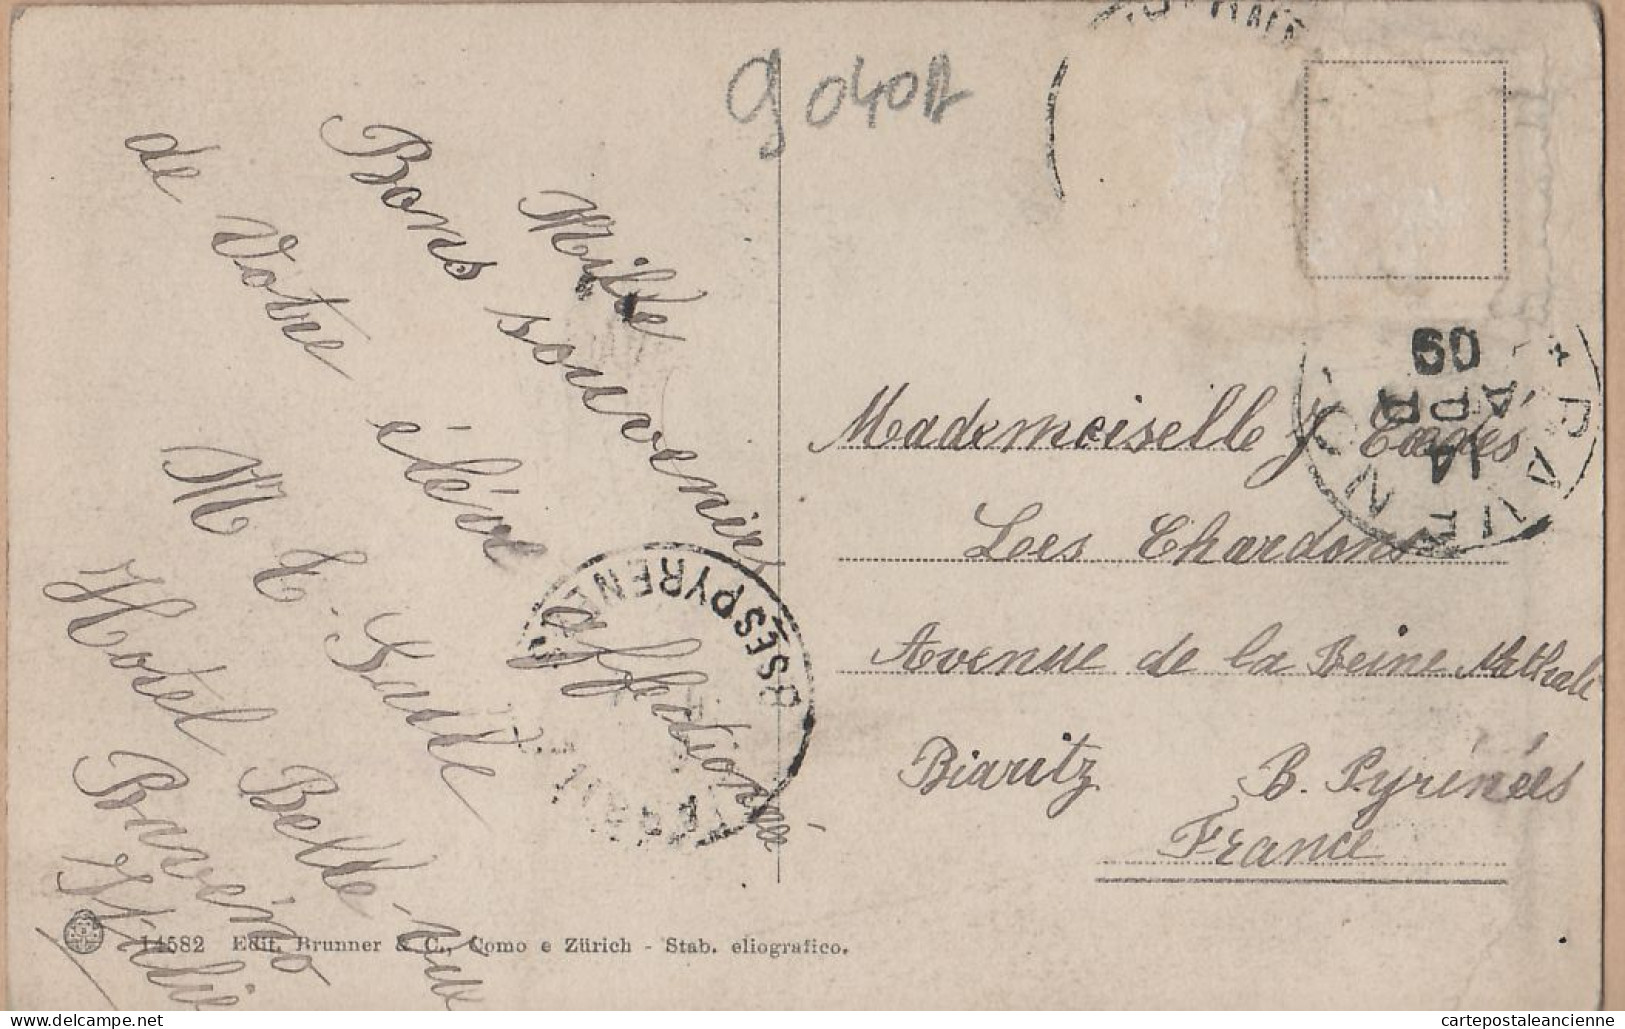 90401
Mille
Bons souvenirs
de Votre élève
affectionnée
M E.
Hotel Belle-Vue
Bavéno
Italie
Mademoiselle J.
Les Chardons
Avenue de la Reine Nathalie
Biarritz B. Pyrénées
France
BSES PYRENEES
* BAVENO
14
APR
09
14582 Edit. Brunner & C., Como e Zürich - Stab. eliografico.
cartepostaleancienne